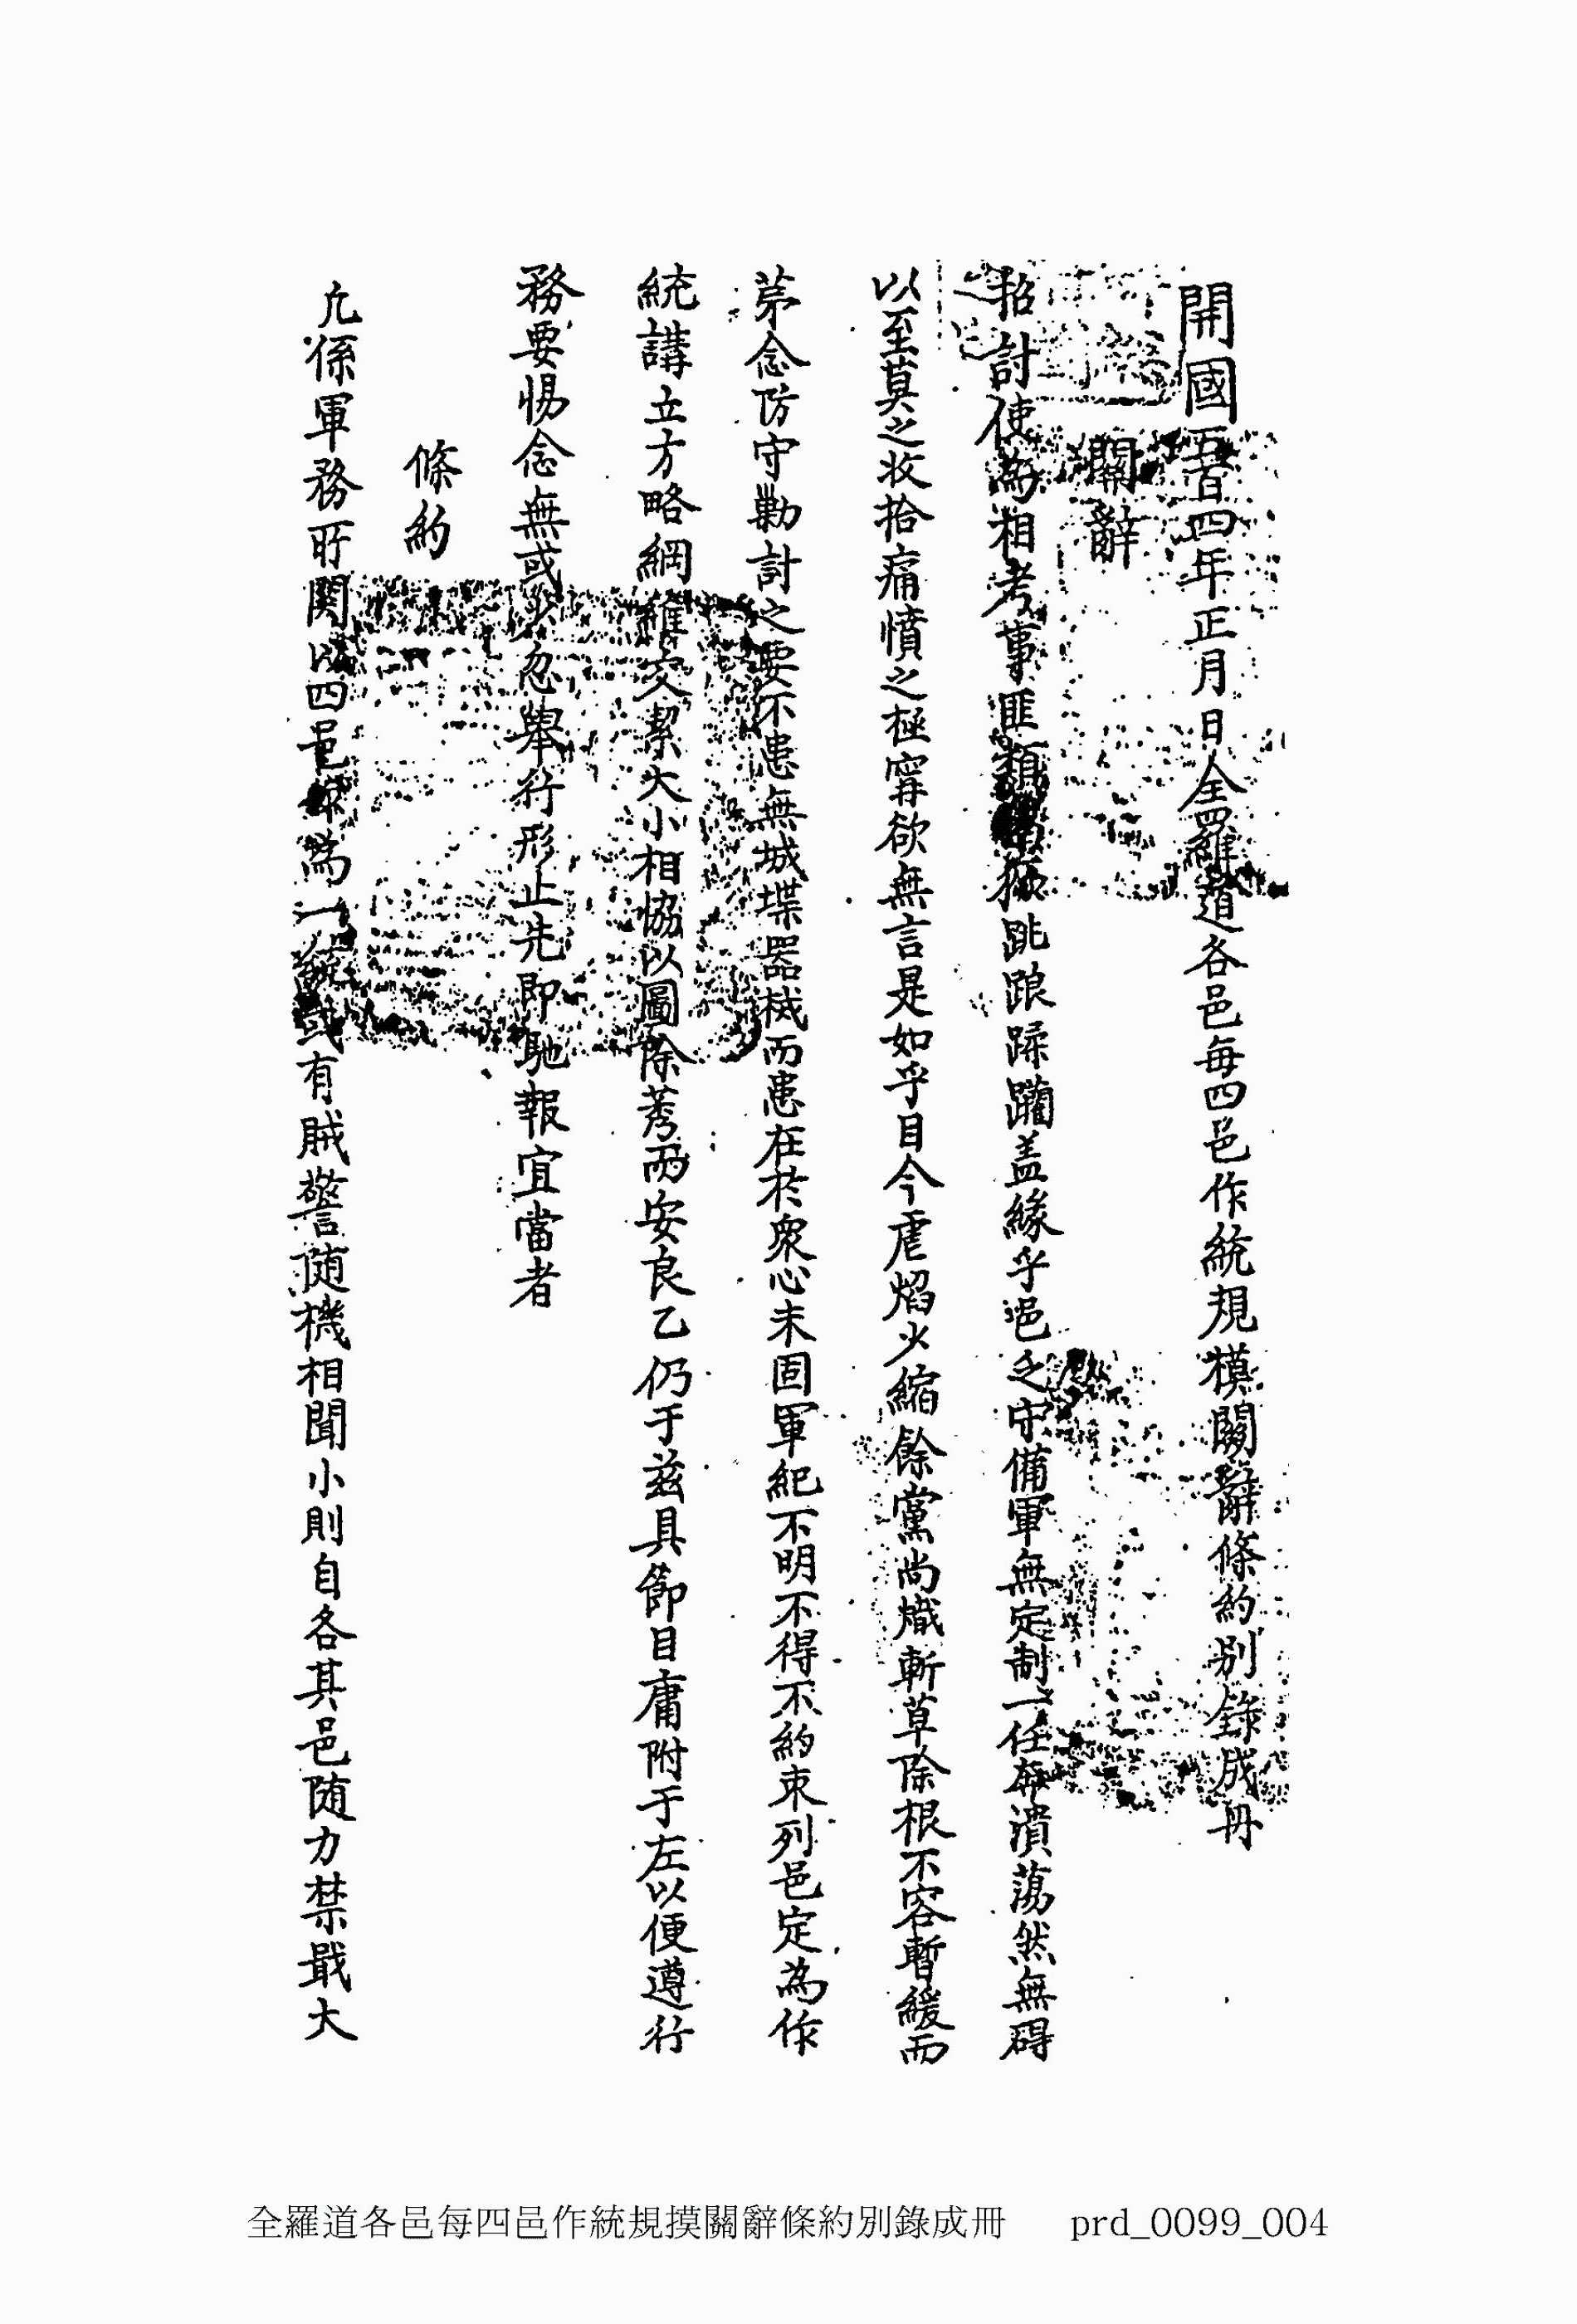 開國五百四年正月日全羅道各邑每四邑作統規模關辭條約別錄成冊
關辭
招討使為相考事匪類猖獗跳踉蹂躪盖緣乎邑乏守備軍無定制一任奔潰蕩然無碍
以至莫之收拾痛憤之極寧欲無言是如乎目今虐焰少縮餘黨尚熾斬草除根不容暫緩而
苐念防守勦討之要不患無城堞器械而患在於衆心未固軍紀不明不得不約束列邑定為作
統講立方略綱維交絜大小相恊以圖除莠而安良乙仍于兹具節目庸附于左以便遵行
務要惕念無或少忽舉行形止先即馳報宜當者
條約
凢係軍務所関以四邑為一統或有賊警随機相聞小則自各其邑随力禁戢大
全羅道各邑每四邑作統規摸關辭條約別錄成冊 prd_0099_004